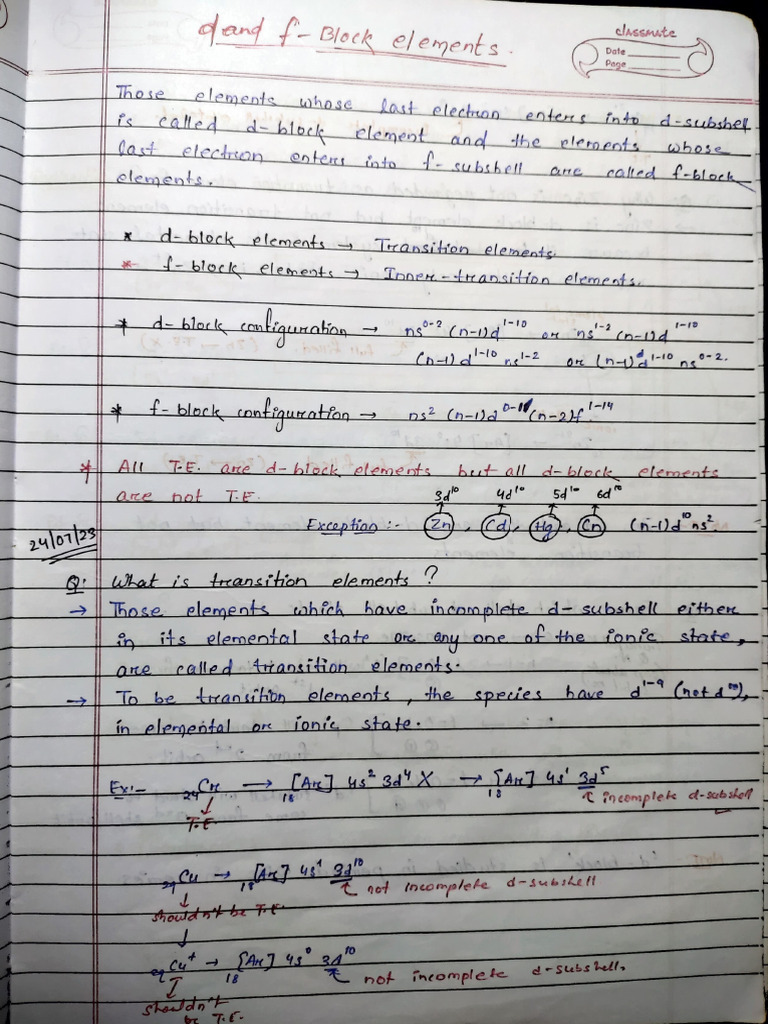 d and f - Block elements.
classmate
Date
Page
Those elements whose last electron enters into d-subshell
is called d-block element and the elements whose
last electron enters into f- subshell are called f-block
elements.
* d-block elements → Transition elements.
* f-block elements → Inner-transition elements.
* d-block configuration → ns⁰⁻² (n-1)d¹⁻¹⁰ or ns¹⁻² (n-1)d¹⁻¹⁰
(n-1)d¹⁻¹⁰ ns¹⁻² or (n-1)d¹⁻¹⁰ ns⁰⁻².
* f-block configuration → ns² (n-1)d⁰⁻¹ (n-2)f¹⁻¹⁴
* All T.E. are d-block elements but all d-block elements
are not T.E.
3d¹⁰ 4d¹⁰ 5d¹⁰ 6d¹⁰
Exception :- Zn, Cd, Hg, Cn (n-1)d¹⁰ns².
24/07/23
Q: What is transition elements ?
→ Those elements which have incomplete d- subshell either
in its elemental state or any one of the ionic state,
are called transition elements.
→ To be transition elements, the species have d¹⁻⁹ (not d¹⁰),
in elemental or ionic state.
Ex:- ₂₄Cr → ₁₈[Ar] 4s² 3d⁴ X → ₁₈[Ar] 4s¹ 3d⁵
↓ incomplete d-subshell
T.E
₂₉Cu → ₁₈[Ar] 4s¹ 3d¹⁰
↓ not incomplete d-subshell
shouldn't be T.E.
↓
₂₉Cu⁺ → ₁₈[Ar] 4s⁰ 3d¹⁰
↓ not incomplete d-subshell.
shouldn't
be T.E.